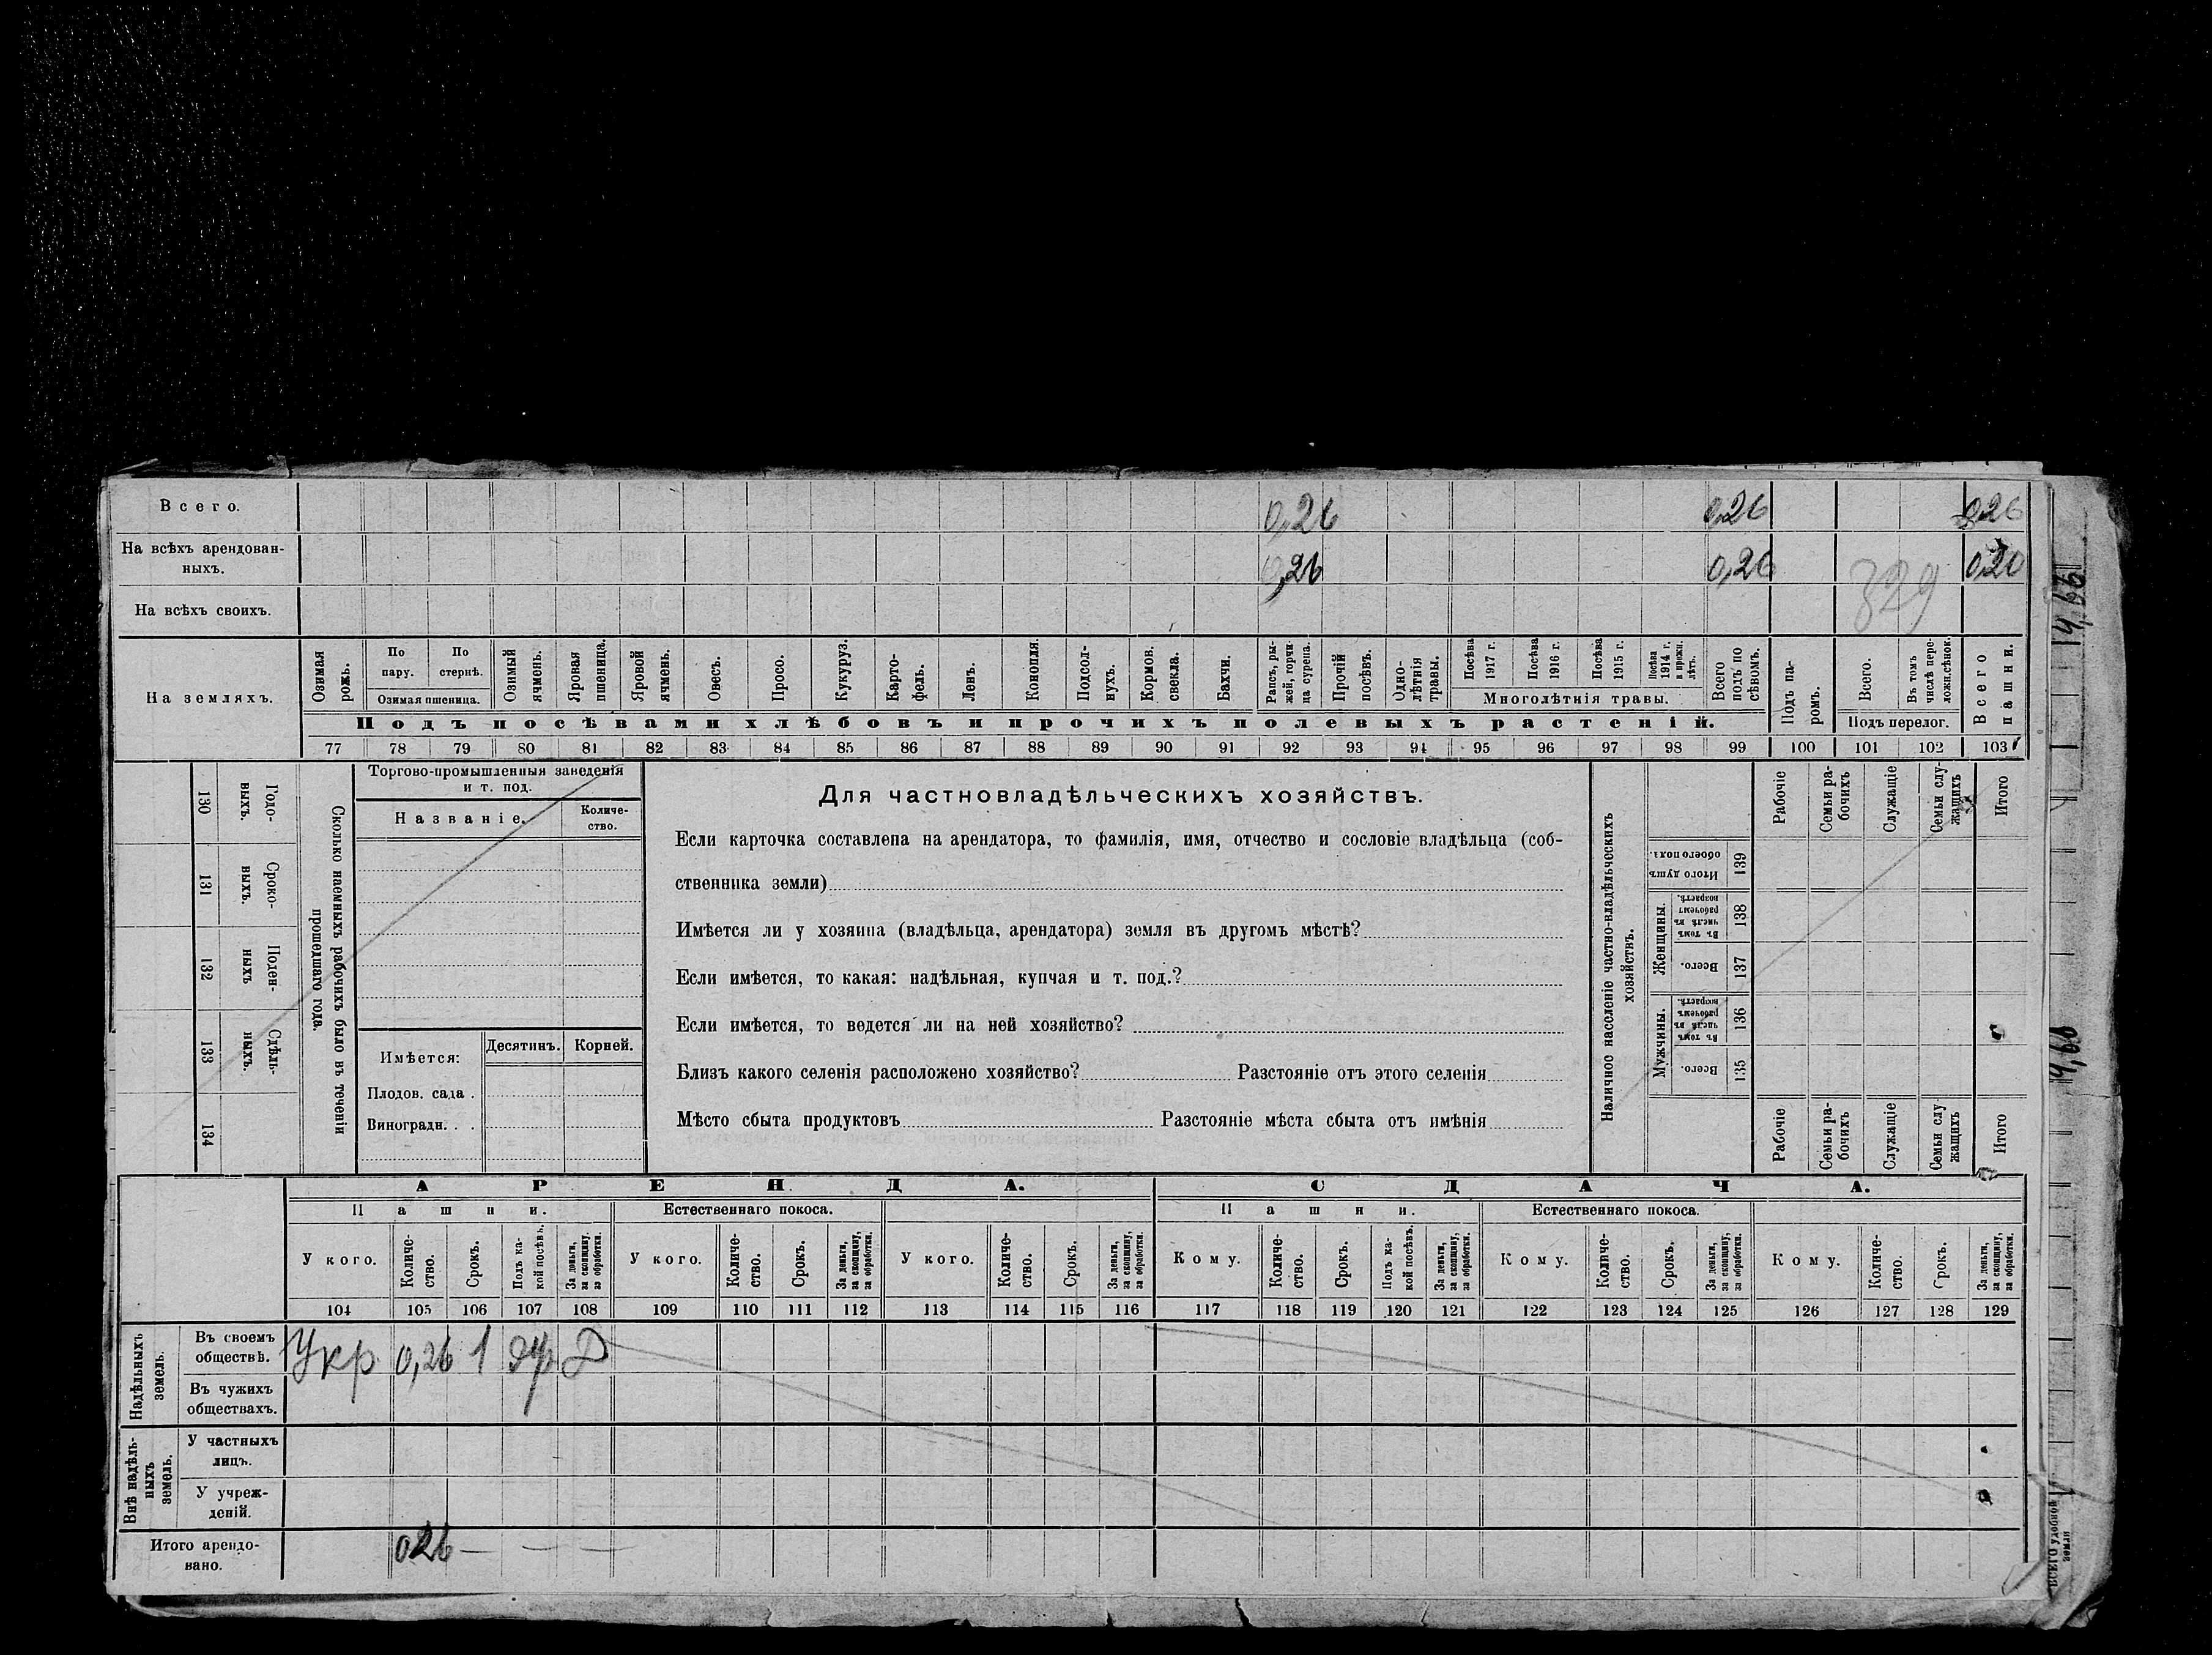 Всего. 0,26 0,26 0,26
На всѣхъ арендован-
ныхъ. 0,26 0,26 329 0,20
На всѣхъ своихъ.
На земляхъ.
Озимая рожь.
По пару.
По стернѣ.
Озимая пшеница.
Озимый ячмень.
Яровая пшеница.
Яровой ячмень.
Овесъ.
Просо.
Кукуруз.
Карто-
фель.
Ленъ.
Конопля.
Подсол-
нухъ.
Кормов. свекла.
Бахчи.
Рапсъ, ры-
жей, горчи-
ца сурепа.
Прочій посѣвъ.
Одно-
лѣтнія травы.
Посѣва 1917 г.
Посѣва 1916 г.
Посѣва 1915 г.
Посѣва 1914 г. и прежн. лѣтъ.
Многолѣтнія травы.
Всего подъ по
сѣвомъ.
Подъ па-
ромъ.
Всего.
Въ томъ числѣ пере-
ложн. сѣнок.
Подъ перелог.
Всего пашни.
Подъ посѣвами хлѣбовъ и прочихъ полевыхъ растеній.
77 78 79 80 81 82 83 84 85 86 87 88 89 90 91 92 93 94 95 96 97 98 99 100 101 102 103
Сколько наемныхъ рабочихъ было въ теченіи
прошедшаго года.
Годо-
выхъ. 130
Сроко-
ныхъ. 131
Поден-
ныхъ 132
Сдѣль-
ныхъ. 133
134
Торгово-промышленныя заведенія
и т. под.
Названіе.
Количе-
ство.
Имѣется:
Десятинъ. Корней.
Плодов. сада .
Виноградн. . .
Для частновладѣльческихъ хозяйствъ.
Если карточка составлена на арендатора, то фамилія, имя, отчество и сословіе владѣльца (соб-
ственника земли)
Имѣется ли у хозяина (владѣльца, арендатора) земля въ другомъ мѣстѣ?
Если имѣется, то какая: надѣльная, купчая и т. под.?
Если имѣется, то ведется ли на ней хозяйство?
Близъ какого селенія расположено хозяйство? Разстояніе отъ этого селенія
Мѣсто сбыта продуктовъ Разстояніе мѣста сбыта отъ имѣнія
Наличное населеніе частно-владѣльческихъ
хозяйствъ.
Рабочіе
Семьи ра-
бочихъ
Служащіе
Семьи слу-
жащихъ
Итого
Итого душъ обоего пола. 139
Женщины.
Въ томъ числѣ въ рабочемъ возрастѣ. 138
Всего. 137
Мужчины.
Въ томъ числѣ въ рабочемъ возрастѣ. 136
Всего. 135
Рабочіе
Семьи ра-
бочихъ
Служащіе
Семьи слу
жащихъ
Итого
АРЕНДА. СДАЧА.
Пашни. Естественнаго покоса. Пашни. Естественнаго покоса.
У кого.
Количе-
ство.
Срокъ.
Подъ ка-
кой посѣвъ.
За деньги, за скопщину, за обработки.
У кого.
Количе-
ство.
Срокъ.
За деньги, за скопщину, за обработки.
У кого.
Количе-
ство.
Срокъ.
За деньги, за скопщину, за обработки.
Кому.
Количе-
ство.
Срокъ.
Подъ ка-
кой посѣвъ.
За деньги, за скопщину, за обработки.
Кому.
Количе-
ство.
Срокъ.
За деньги, за скопщину, за обработки.
Кому.
Количе-
ство.
Срокъ.
За деньги, за скопщину, за обработки.
104 105 106 107 108 109 110 111 112 113 114 115 116 117 118 119 120 121 122 123 124 125 126 127 128 129
Надѣльныхъ
земель.
Въ своемъ
обществѣ. Укр 0,26 1 Д
Въ чужихъ
обществахъ.
Внѣ надѣль-
ныхъ
земель.
У частныхъ
лицъ.
У учреж-
деній.
Итого арендо-
вано. 026 — — —
ВСЕГО удобной
земли